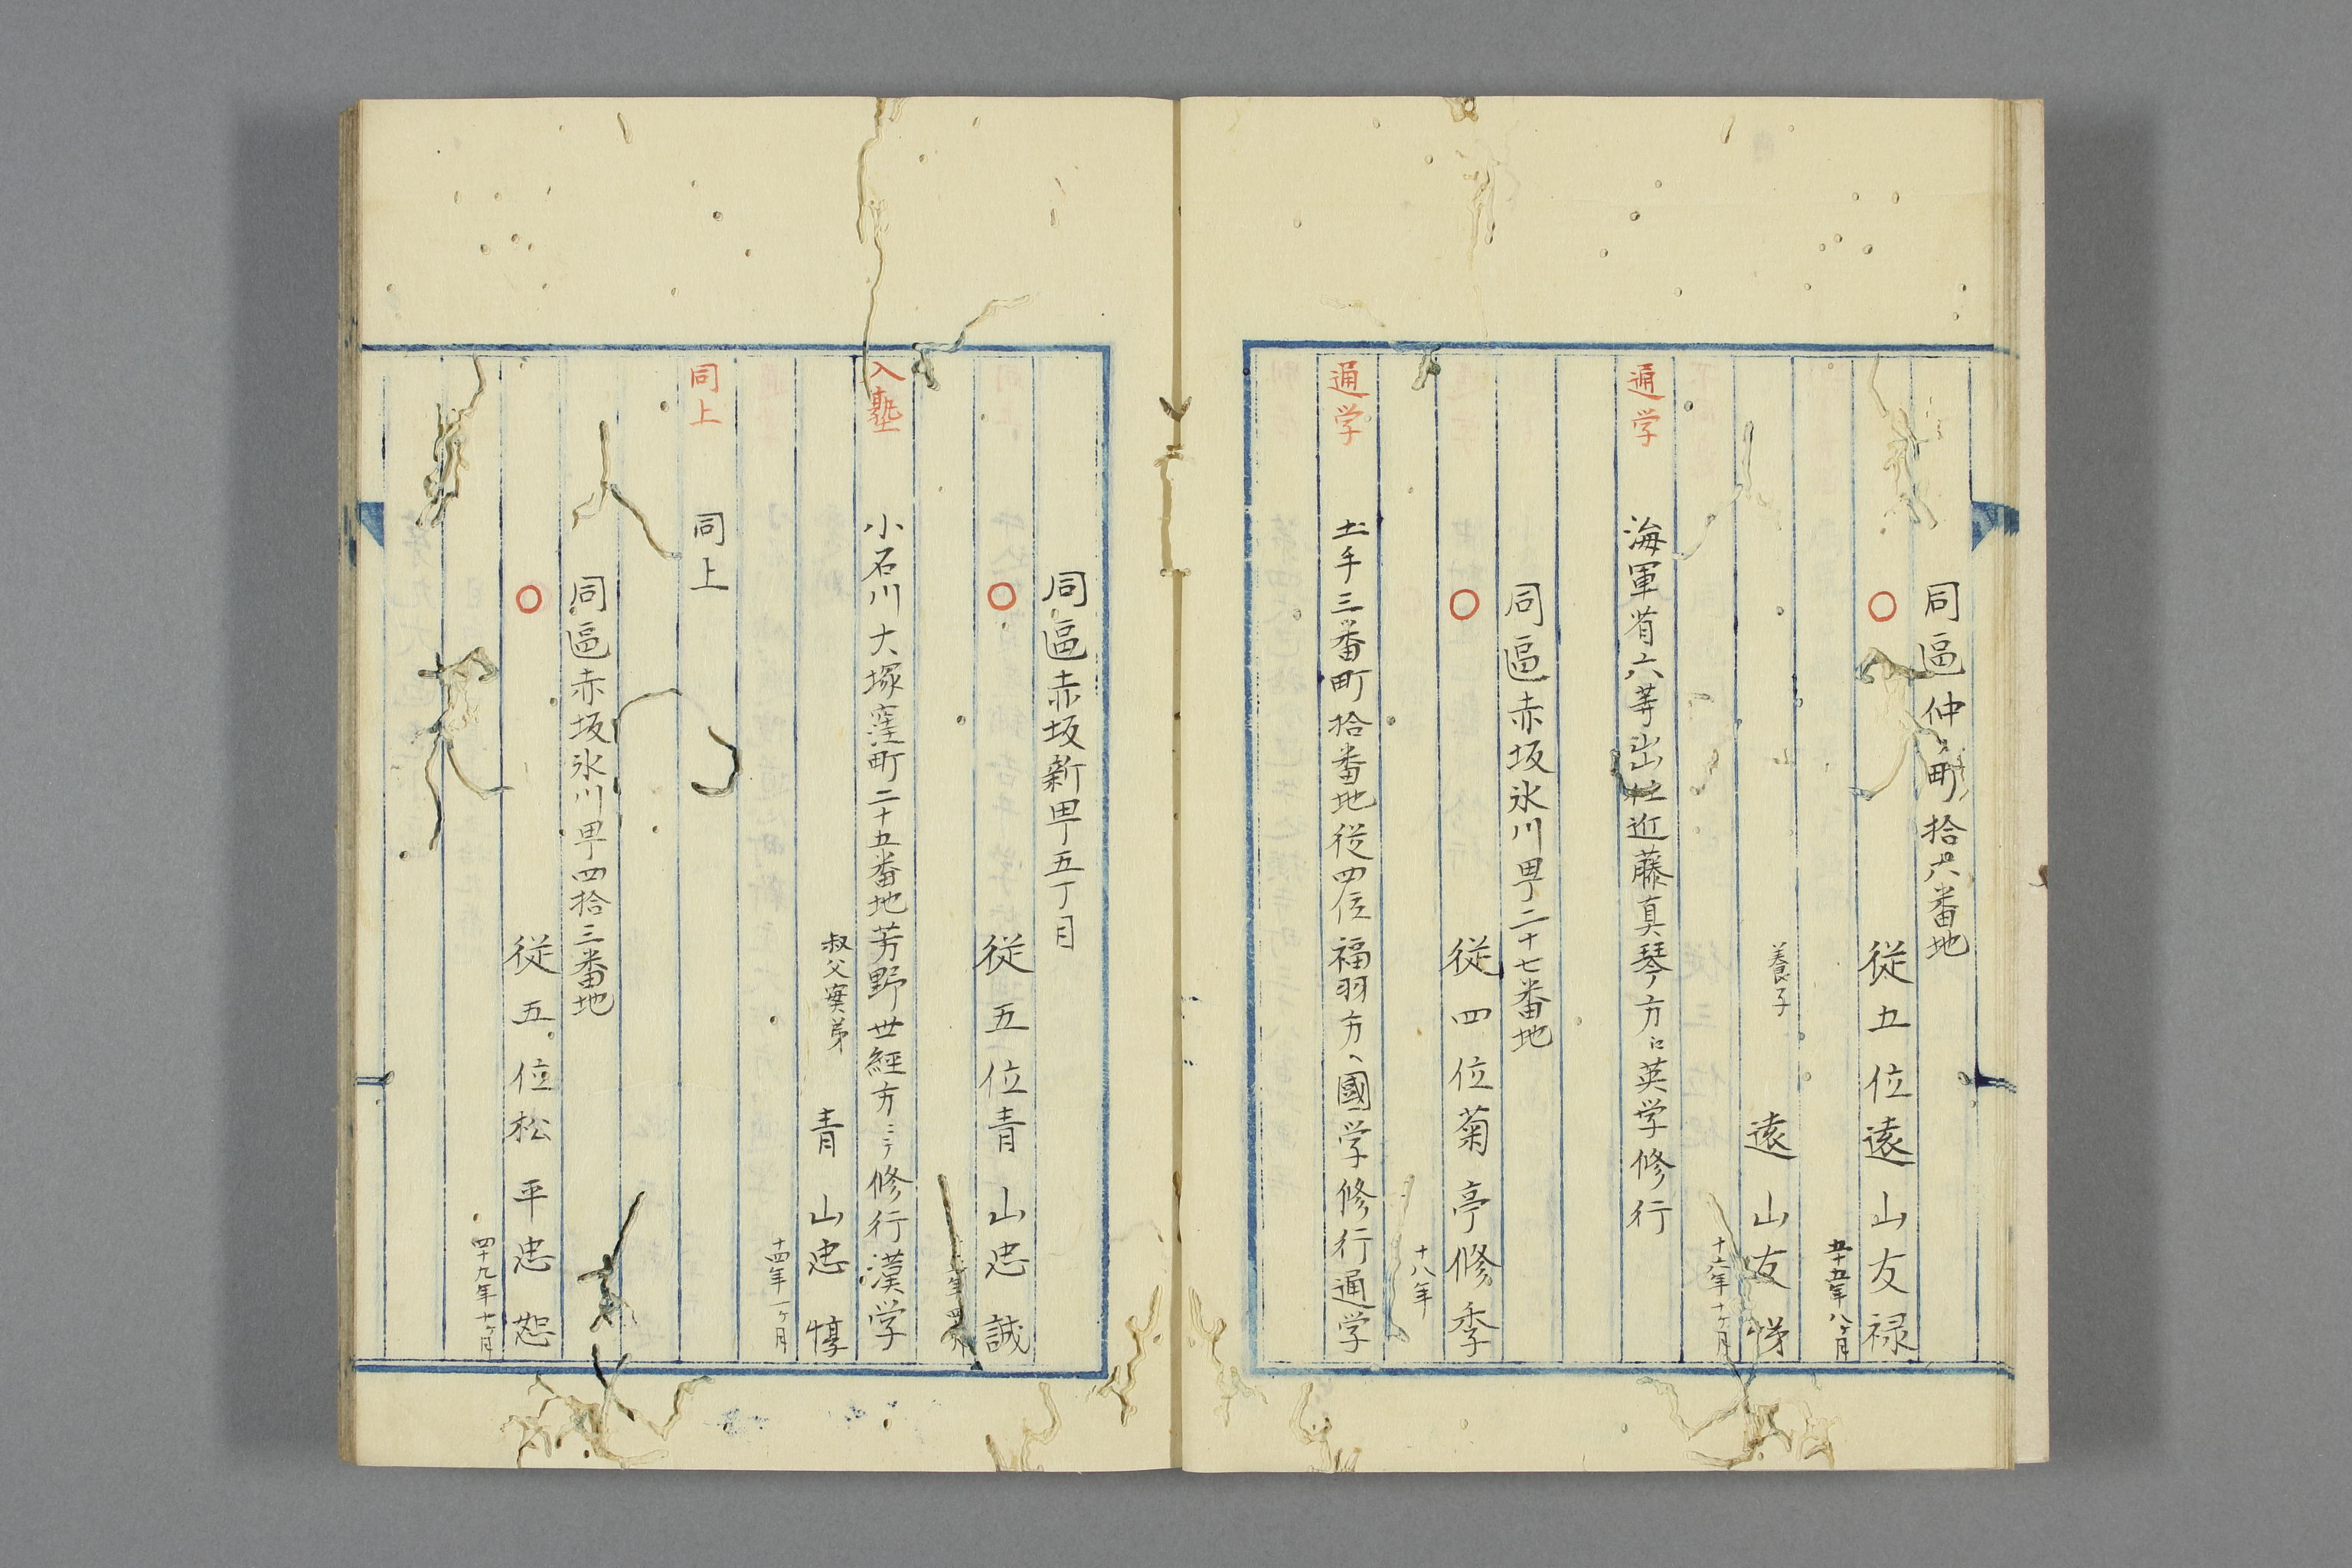 同區仲町拾六番地
〇 従五位遠山友禄
五十五年八ヶ月
養子 遠山友悌
十六年十ヶ月
通学 海軍省六等出仕近藤真琴方ニ英学修行
同區赤坂氷川町二十七番地
〇 従四位菊亭修季
十八年
通学 土手三番町拾番地従四位福羽方ヘ國学修行通学
同區赤坂新町五丁目
〇 従五位青山忠誠
入塾 小石川大塚窪町二十五番地芳野世経方ニテ修行漢学
叔父実弟 青山忠惇
十四年一ヶ月
同上 同上
同區赤坂氷川町四拾三番地
〇 従五位松平忠恕
四十九年十ヶ月